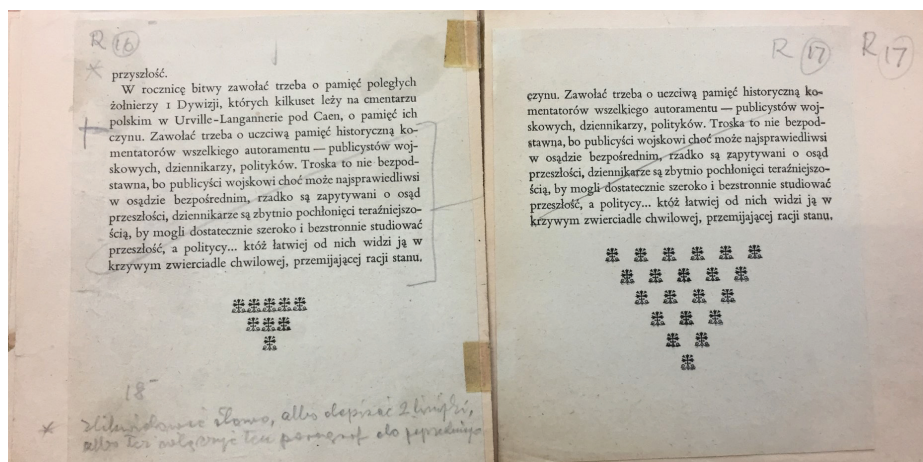 R 16
*
przyszłość.
W rocznicę bitwy zawołać trzeba o pamięć poległych
żołnierzy 1 Dywizji, których kilkuset leży na cmentarzu
polskim w Urville-Langannerie pod Caen, o pamięć ich
czynu. Zawołać trzeba o uczciwą pamięć historyczną ko-
mentatorów wszelkiego autoramentu — publicystów woj-
skowych, dziennikarzy, polityków. Troska to nie bezpod-
stawna, bo publicyści wojskowi choć może najsprawiedliwsi
w osądzie bezpośrednim, rzadko są zapytywani o osąd
przeszłości, dziennikarze są zbytnio pochłonięci teraźniejszo-
ścią, by mogli dostatecznie szeroko i bezstronnie studiować
przeszłość, a politycy... któż łatwiej od nich widzi ją w
krzywym zwierciadle chwilowej, przemijającej racji stanu.
18
* zlikwidować słowo, albo dopisać 2 linijki,
albo też połączyć ten paragraf do poprzedniego
R 17 R 17
czynu. Zawołać trzeba o uczciwą pamięć historyczną ko-
mentatorów wszelkiego autoramentu — publicystów woj-
skowych, dziennikarzy, polityków. Troska to nie bezpod-
stawna, bo publicyści wojskowi choć może najsprawiedliwsi
w osądzie bezpośrednim, rzadko są zapytywani o osąd
przeszłości, dziennikarze są zbytnio pochłonięci teraźniejszo-
ścią, by mogli dostatecznie szeroko i bezstronnie studiować
przeszłość, a politycy... któż łatwiej od nich widzi ją w
krzywym zwierciadle chwilowej, przemijającej racji stanu.